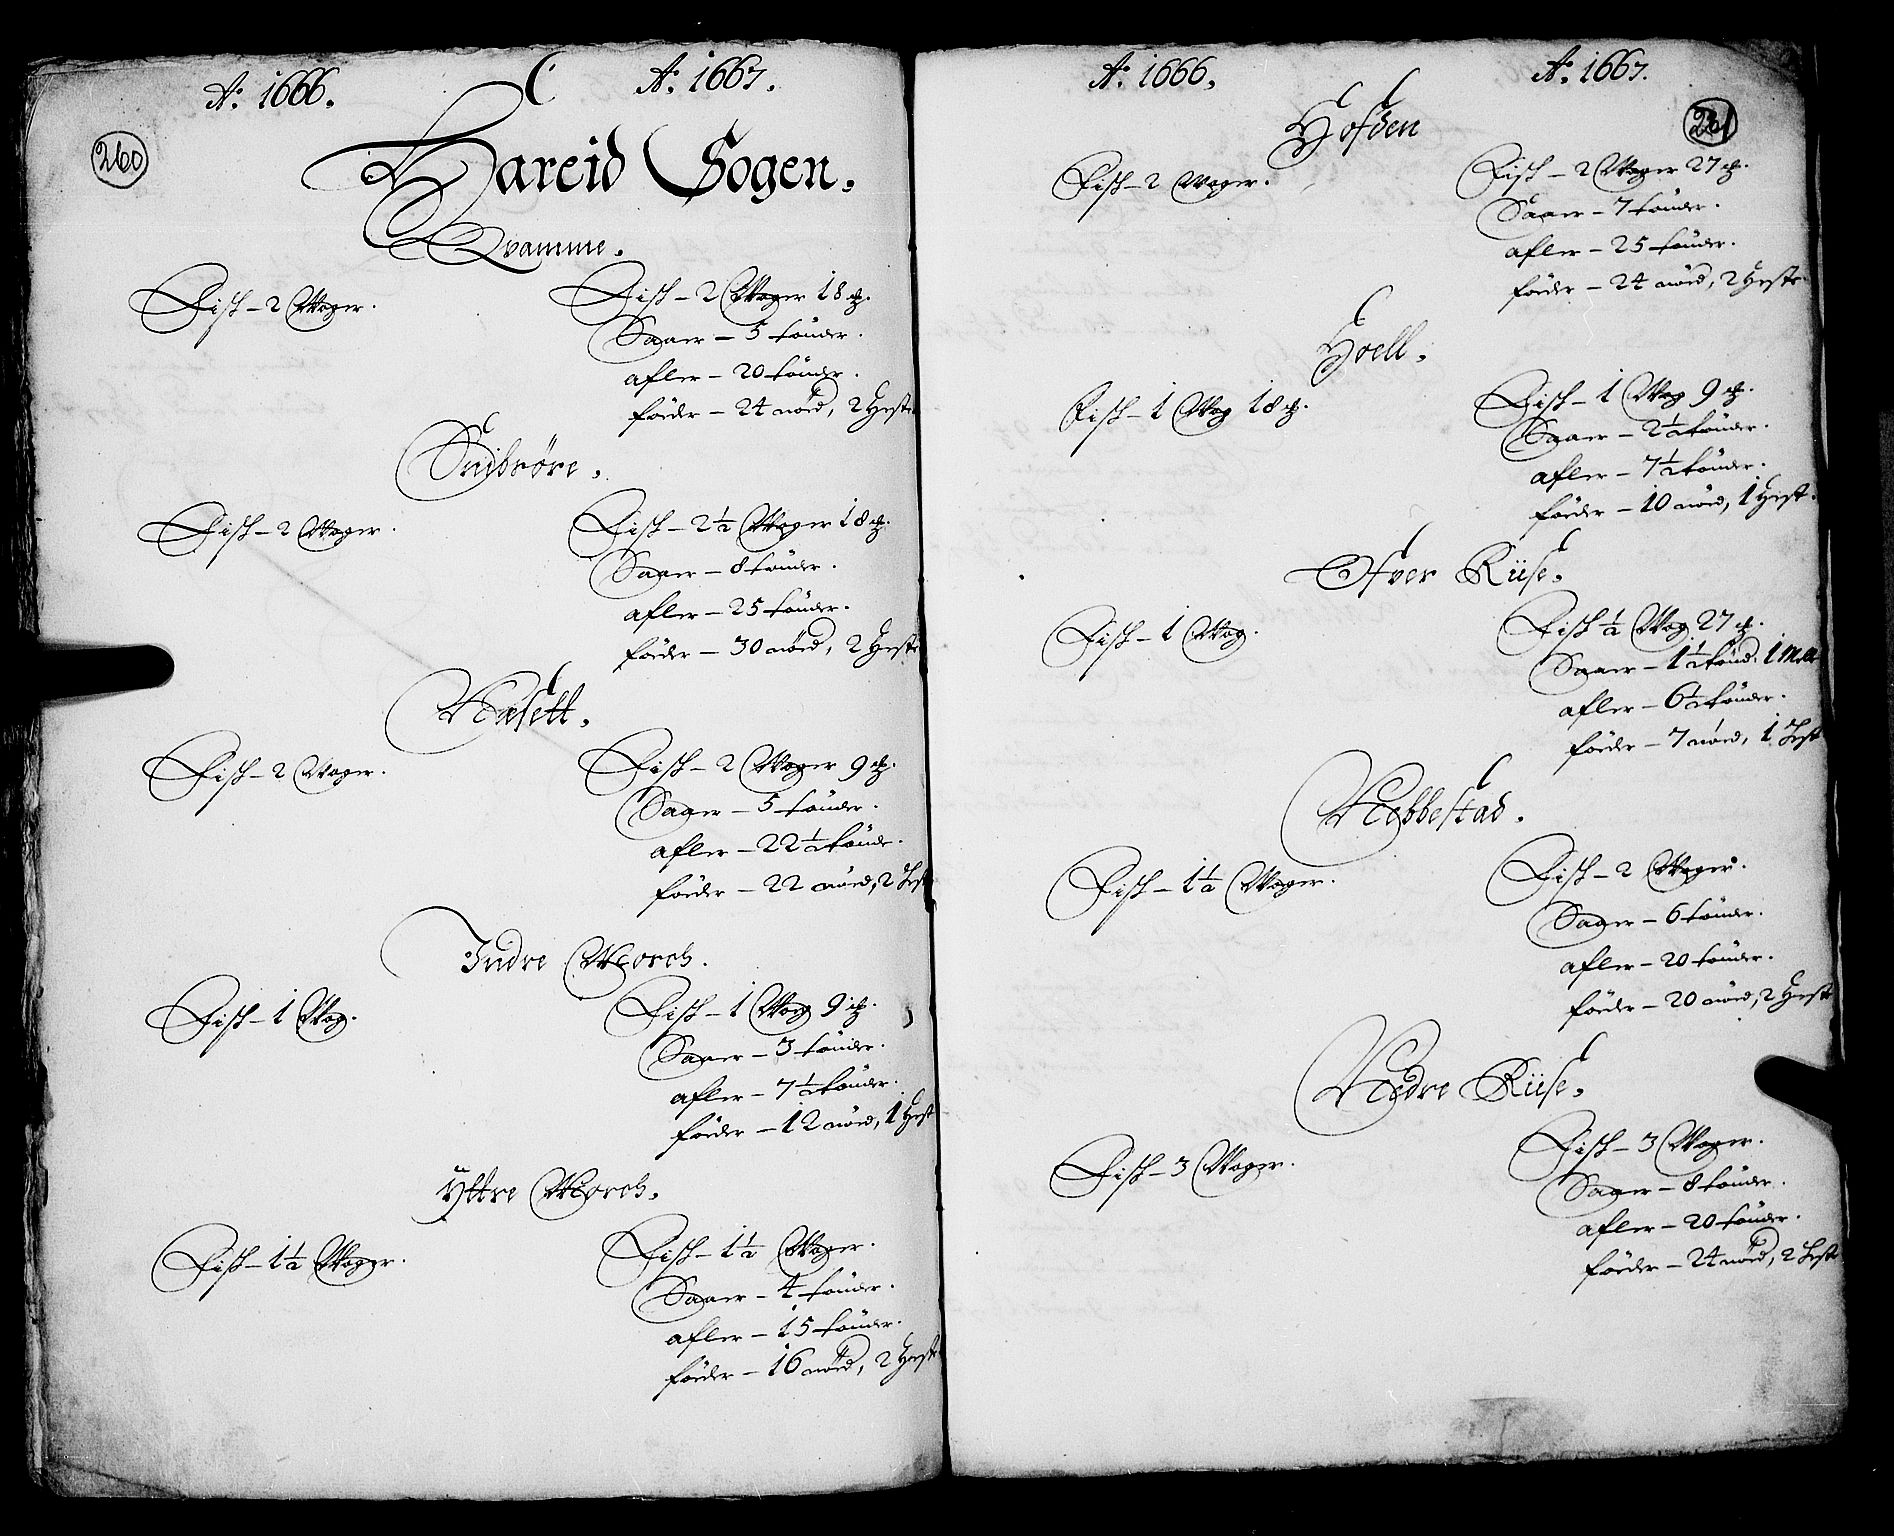 Aº. 1666. Aº. 1667.
260
Hareid Sogen.
Qvamme.
Fisk - 2 Woger.
Fisk - 2 Woger 18 ℔.
Saaer - 5 tönder.
afler - 20 tönder.
föeder - 24 nöed, 2 Heste
Snibröre.
Fisk - 2 Woger.
Fisk - 2½ Woger 18 ℔.
Saaer - 8 tönder.
afler - 25 tönder.
föeder - 30 nöed, 2 Heste
Næsett.
Fisk - 2 Woger.
Fisk - 2 Woger 9 ℔.
Saaer - 5 tönder.
afler - 22½ tönder.
föeder - 22 nöed, 2 Hest
Indre Morck.
Fisk - 1 Wog.
Fisk - 1 Wog 9 ℔.
Saaer - 3 tönder.
afler - 7½ tönder.
föeder - 12 nöed, 1 Hest
Yttre Morck.
Fisk - 1½ Woger.
Fisk - 1½ Woger.
Saaer - 4 tönder.
afler - 15 tönder.
föeder - 16 nöed, 2 Heste
Aº. 1666. Aº. 1667.
261
Hofden
Fisk - 2 Woger.
Fisk - 2 Woger 27 ℔.
Saaer - 7 tönder.
afler - 25 tönder.
föeder - 24 nöed, 2 Heste.
Hoell.
Fisk - 1 Wog 18 ℔.
Fisk - 1 Wog 9 ℔.
Saaer - 2½ tönder.
afler - 7½ tönder.
föeder - 10 nöed, 1 Hest.
Ofver Riise.
Fisk - 1 Wog.
Fisk ½ Wog 27 ℔.
Saaer - 1½ tönd. 1
afler - 6½ tönder.
föeder - 7 nöed, 1 Hest
Nebbestad.
Fisk - 1½ Woger.
Fisk - 2 Woger.
Saaer - 6 tönder.
afler - 20 tönder.
föeder - 20 nöed, 2 Heste
Nedre Riise.
Fisk - 3 Woger.
Fisk - 3 Woger.
Saaer - 8 tönder.
afler - 20 tönder.
föeder - 24 nöed, 2 Heste